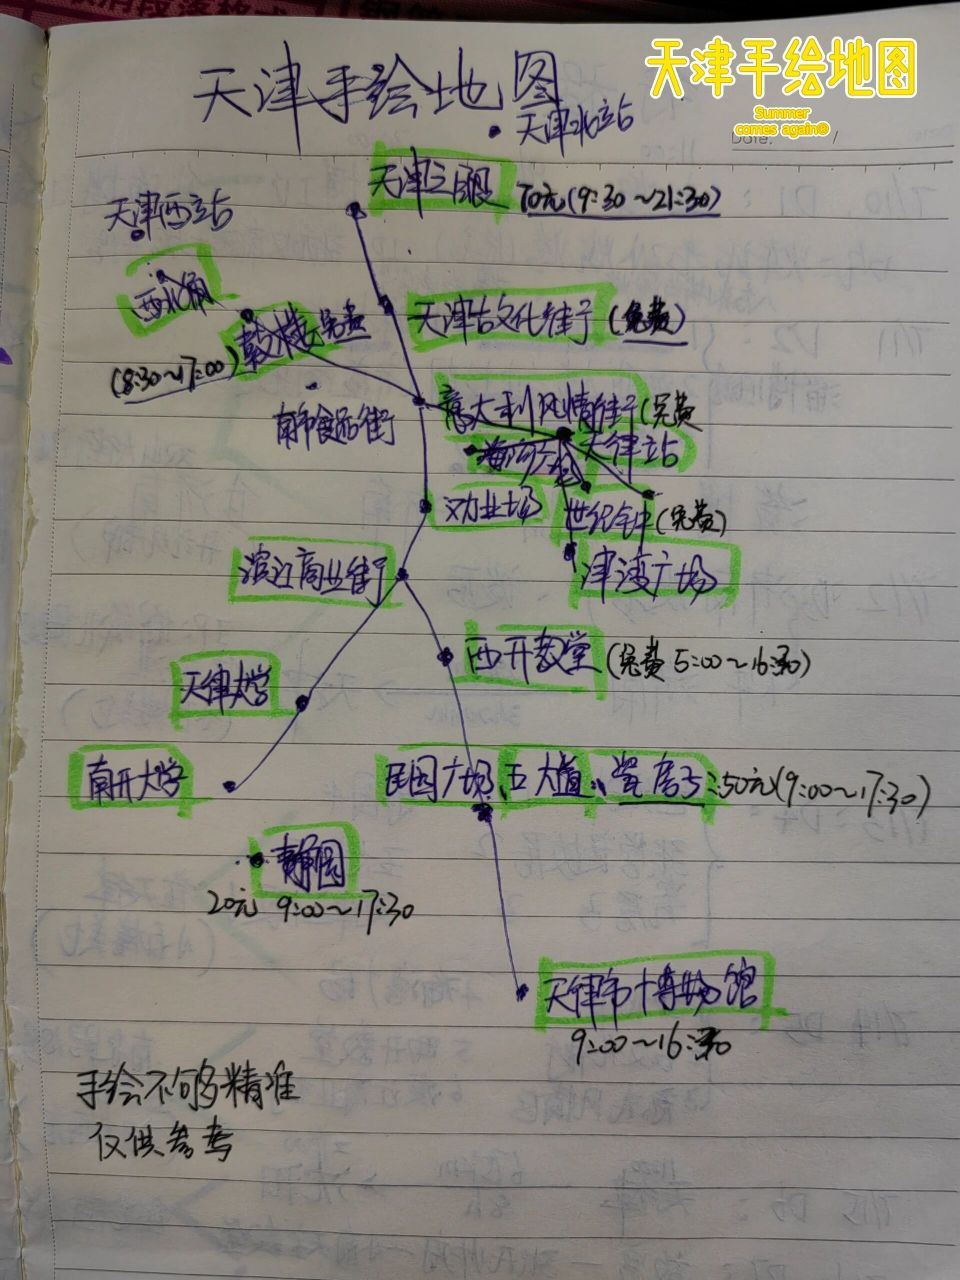 天津手绘地图
Summer
comes again®
天津手绘地图
天津北站
Date: /
天津之眼 70元(9:30~21:30)
天津西站
西北角
天津古文化街 (免费)
鼓楼 免费
(8:30~17:00)
意大利风情街 (免费
南市食品街
天津站
劝业场
世纪钟 (免费)
津湾广场
滨江商业街
西开教堂 (免费 5:00~16:30)
天津大学
南开大学
民园广场、五大道、瓷房子:50元(9:00~17:30)
静园
20元 9:00~17:30
天津市博物馆
9:00~16:30
手绘不够精准
仅供参考